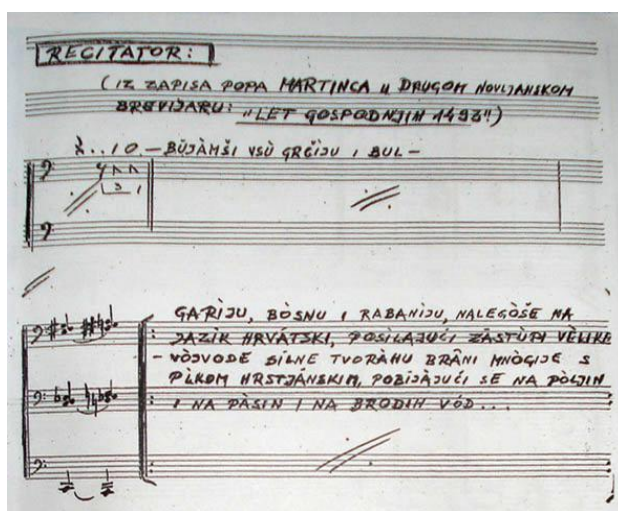 RECITATOR:
(IZ ZAPISA POPA MARTINCA U DRUGOM NOVLJANSKOM
BREVIJARU: "LET GOSPODNJIH 1493")
I..IO – BÙJÀMŠI VSÙ GRČÌJU I BUL –
3
GARÌJU, BÒSNU I RABANÌJU, NALEGÒŠE NA
JAZÌK HRVÁTSKI, POSÌLAJUĆI ZÀSTUPI VÈLIKE
– VÒJVODE SÌLNE TVORÀHU BRÂNI MNÒGIJE S
PÌLKOM HRSTJÁNSKIM, POBÌJÀJUĆI SE NA PÒLJIH
I NA PÀSIH I NA BRODIH VÓD...